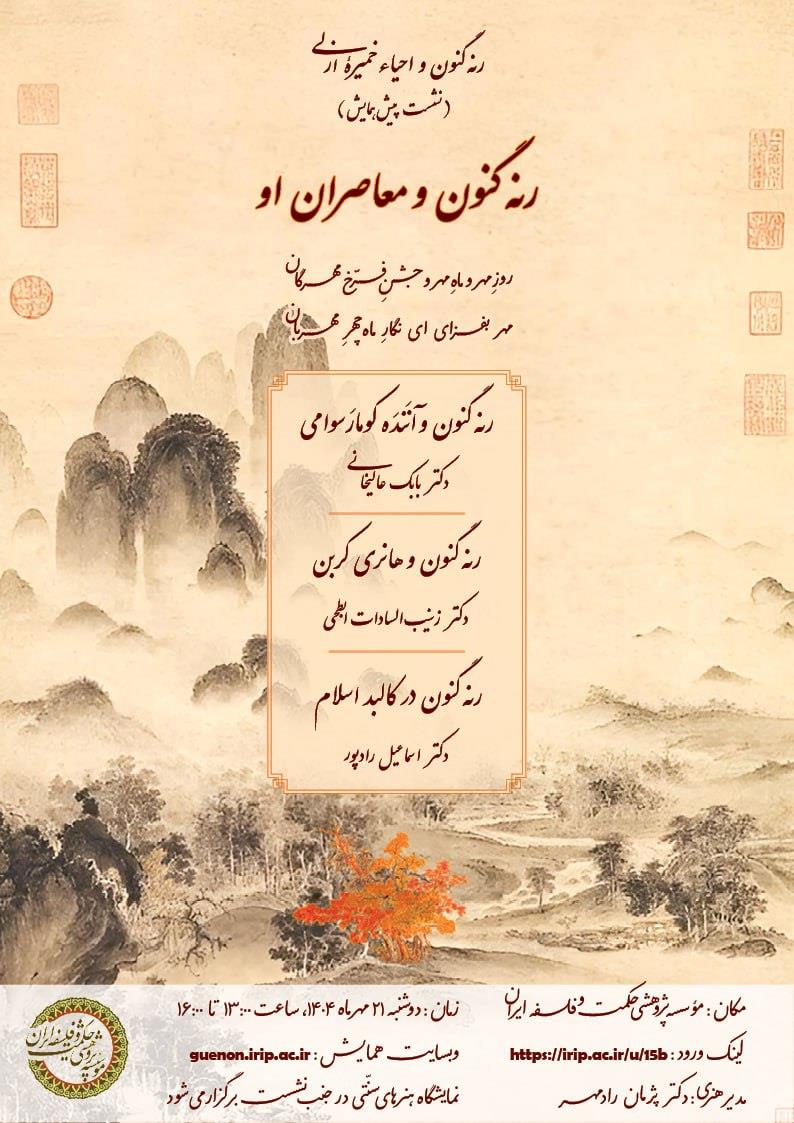 رنه گنون و احیاء خمیرهٔ ازلی
(نشست پیش‌همایش)
رنه گنون و معاصران او
روزِ مهر و ماهِ مهر و جشنِ فرّخ مهرگان
مهر بفزای ای نگارِ ماه چهرِ مهربان
رنه گنون و آنَندَه کومارَسوامی
دکتر بابک عالیخانی
رنه گنون و هانری کربن
دکتر زینب‌السادات ابطحی
رنه گنون در کالبد اسلام
دکتر اسماعیل رادپور
مکان : مؤسسه پژوهشی حکمت و فلسفه ایران
لینک ورود : https://irip.ac.ir/u/15b
مدیر هنری : دکتر پژمان رادمهر
زمان : دوشنبه ۲۱ مهرماه ۱۴۰۴، ساعت ۱۳:۰۰ تا ۱۶:۰۰
وبسایت همایش : guenon.irip.ac.ir
نمایشگاه هنرهای سنّتی در جنب نشست برگزار می شود
مؤسسه پژوهشی حکمت و فلسفه ایران